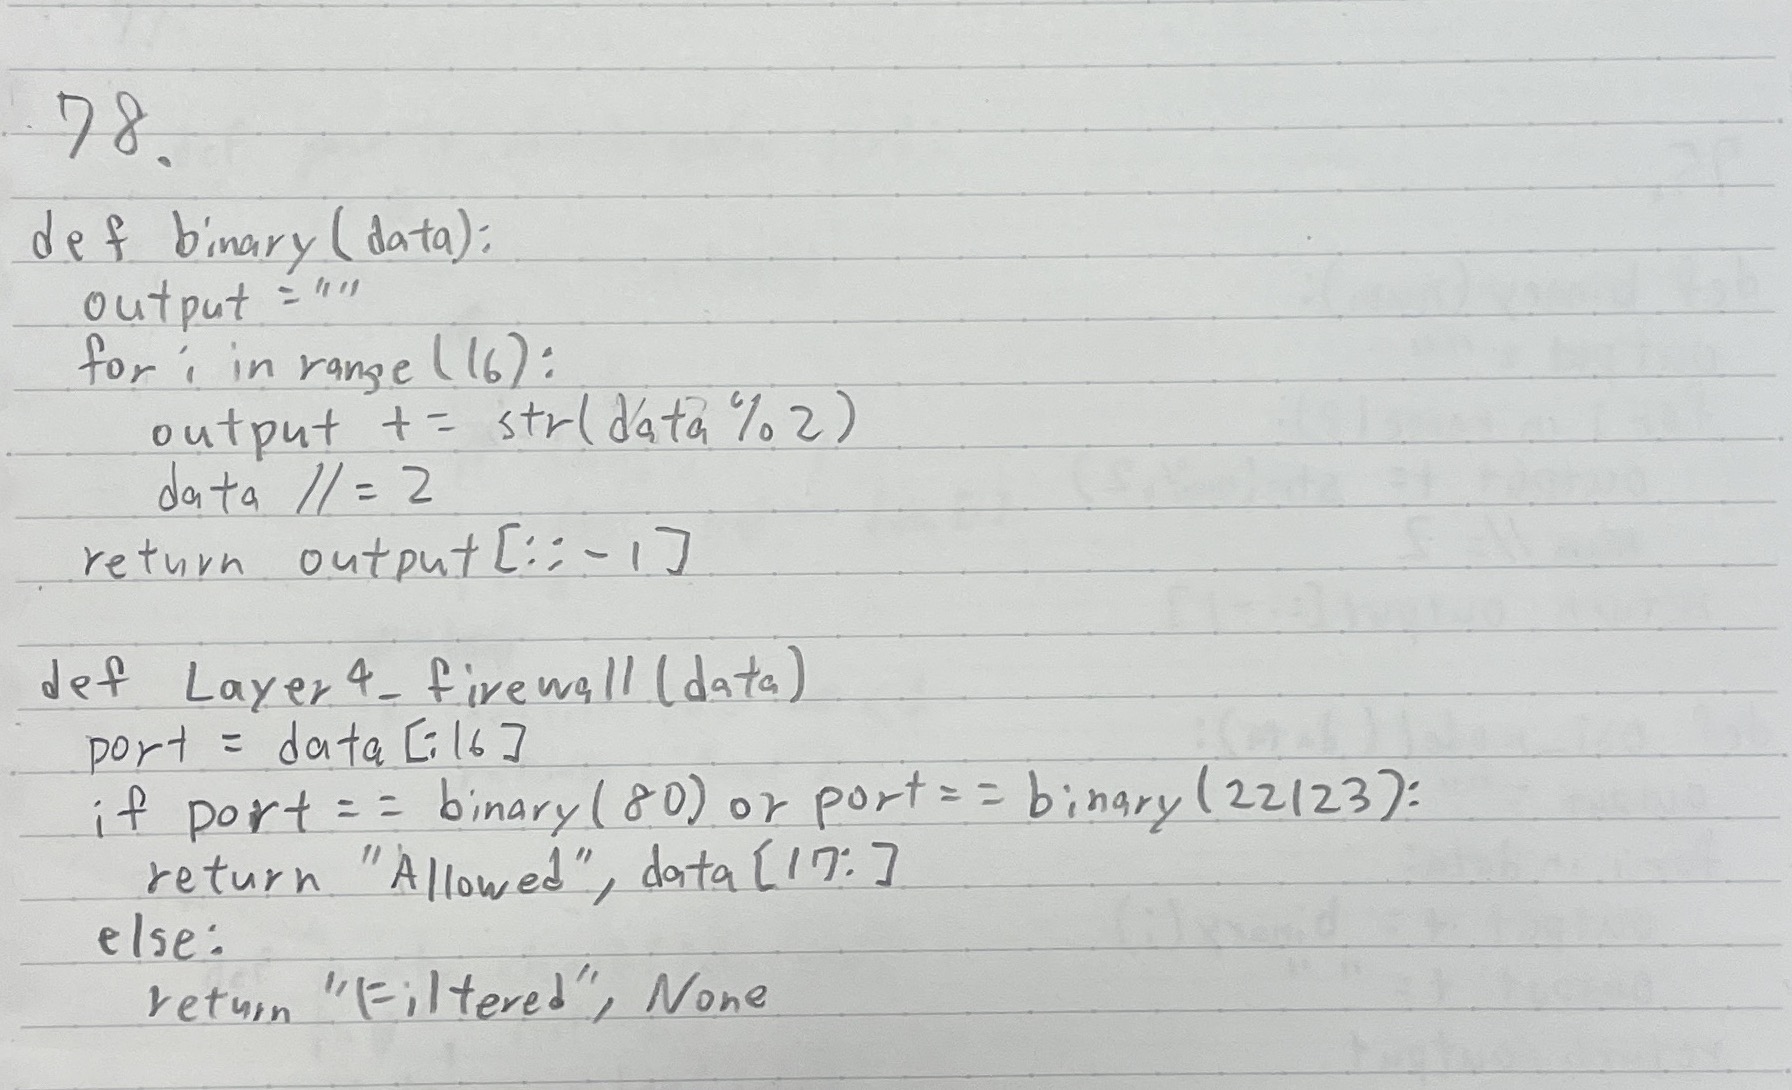 78.
def binary(data):
output = ""
for i in range(16):
output += str(data%2)
data //= 2
return output[::-1]
def Layer4_firewall(data)
port = data[:16]
if port == binary(80) or port == binary(22123):
return "Allowed", data[17:]
else:
return "Filtered", None